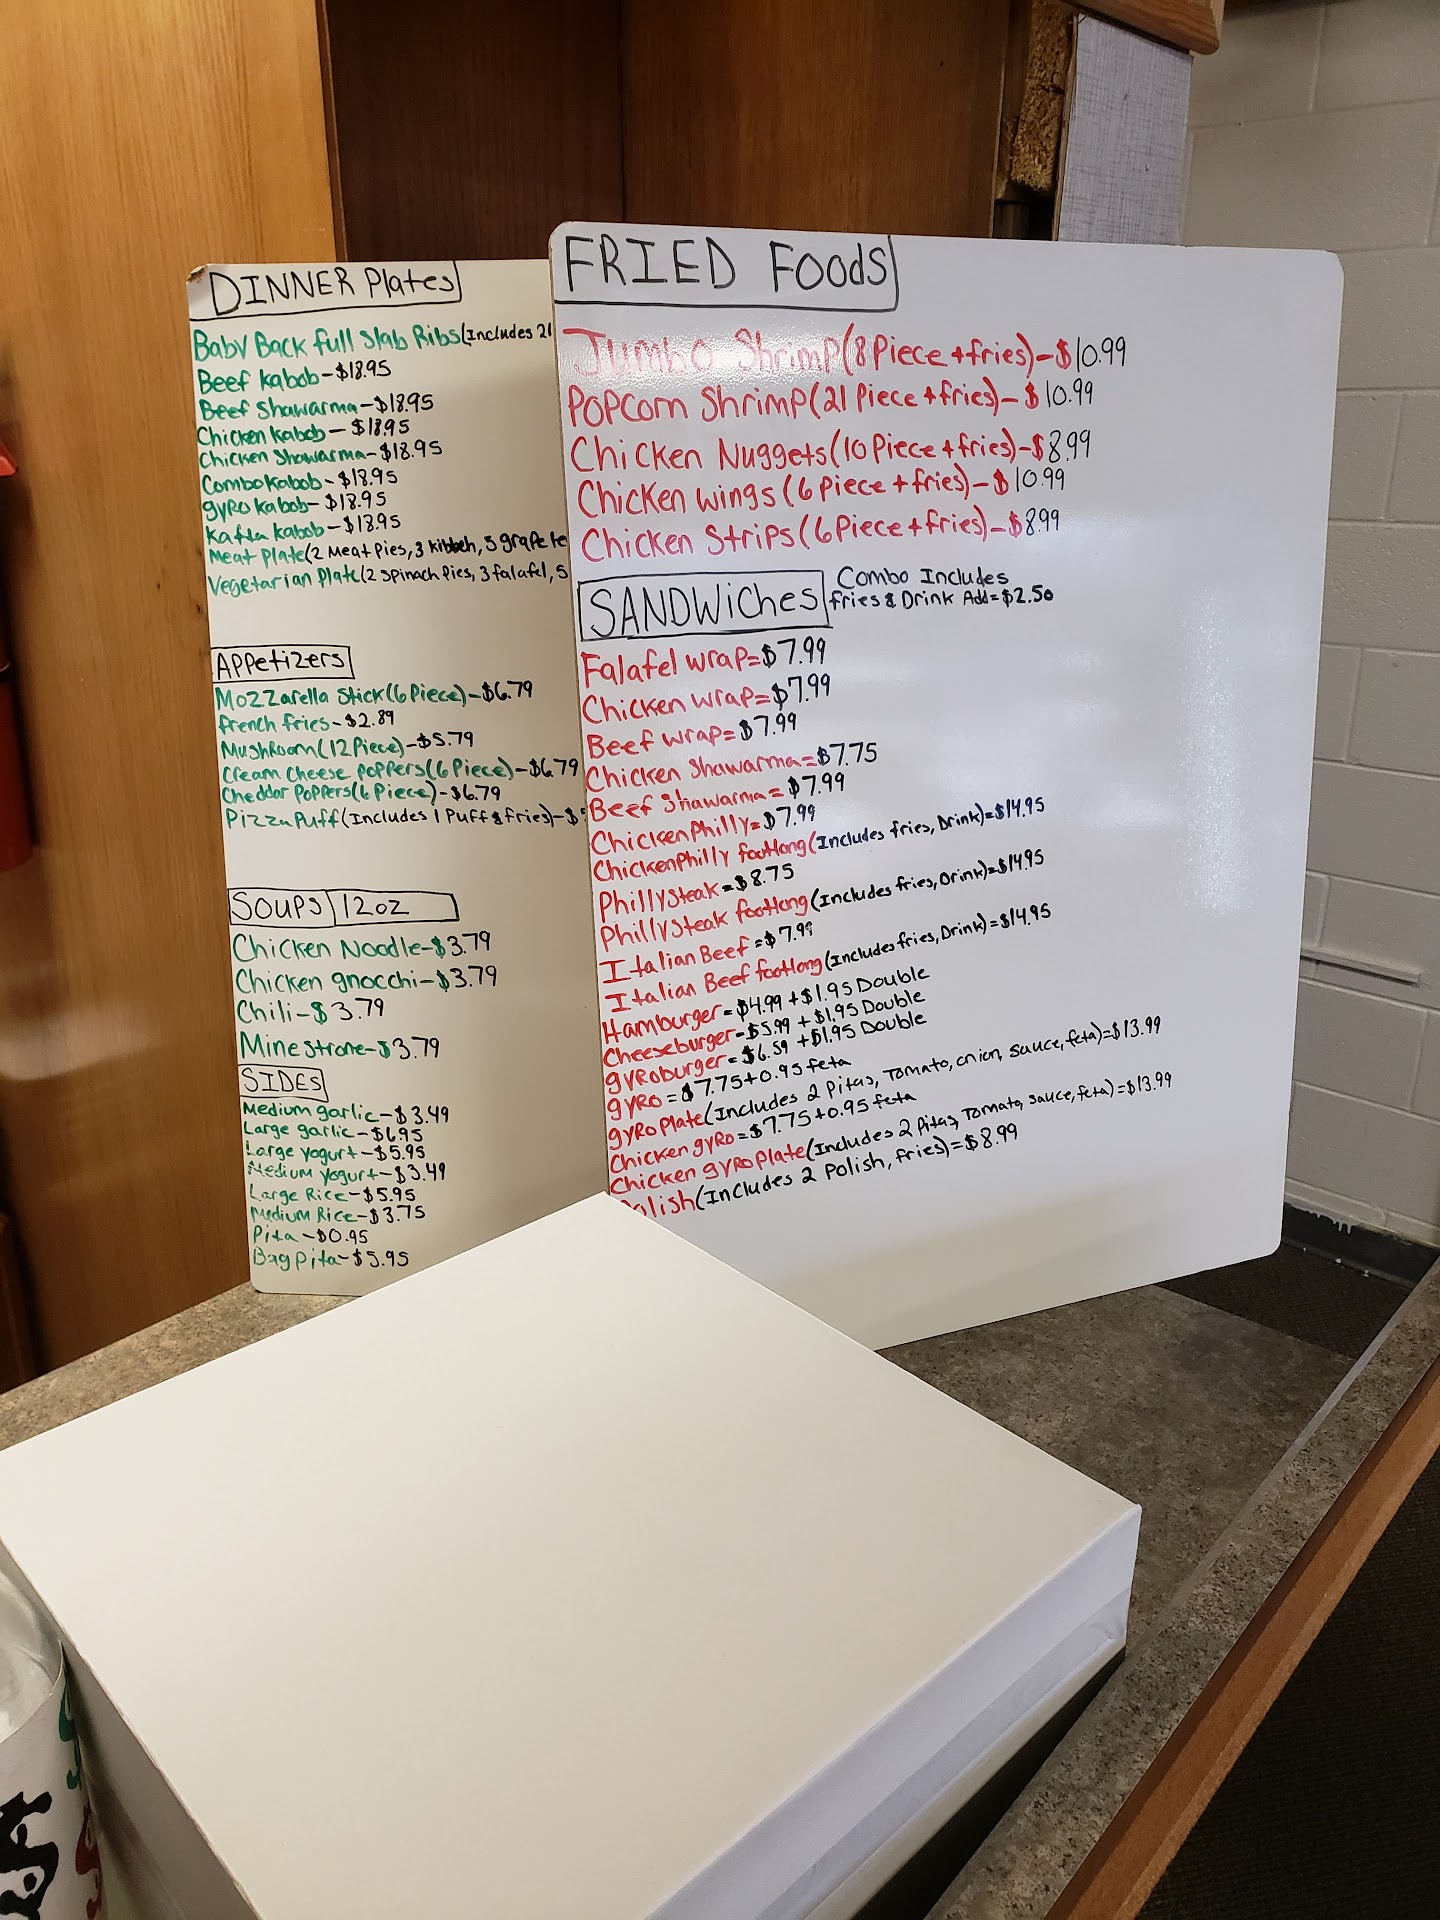 DINNER Plates
Baby Back full Slab Ribs(Includes 2
Beef kabob-$18.95
Beef Shawarma-$18.95
Chicken kabob-$18.95
Chicken Shawarma-$18.95
Combo kabob-$18.95
gyro kabob-$18.95
kafta kabob-$18.95
Meat Plate(2 Meat Pies, 3 kibbeh, 5 grape le
Vegetarian Plate(2 Spinach Pies, 3 falafel, 5
APPetizers
Mozzarella Stick(6 Piece)-$6.79
french fries-$2.89
Mushroom(12 Piece)-$5.79
Cream Cheese Poppers(6 Piece)-$6.79
Cheddar Poppers(6 Piece)-$6.79
Pizza Puff(Includes 1 Puff & fries)-$
SOUPS 12oz
Chicken Noodle-$3.79
Chicken gnocchi-$3.79
Chili-$3.79
Minestrone-$3.79
SIDEs
Medium garlic-$3.49
Large garlic-$6.95
Large yogurt-$5.95
Medium yogurt-$3.49
Large Rice-$5.95
Medium Rice-$3.75
Pita-$0.95
Bag Pita-$5.95
FRIED FoodS
Jumbo Shrimp(8 Piece + fries)-$10.99
POPCorn Shrimp(21 Piece + fries)-$10.99
Chicken Nuggets(10 Piece + fries)-$8.99
Chicken wings(6 Piece + fries)-$10.99
Chicken Strips(6 Piece + fries)-$8.99
SANDWiches Combo Includes
fries & Drink Add=$2.50
Falafel wrap=$7.99
Chicken wrap=$7.99
Beef wrap=$7.99
Chicken Shawarma=$7.75
Beef Shawarma=$7.99
Chicken Philly=$7.99
Chicken Philly footlong(Includes fries, Drink)=$14.95
Philly Steak=$8.75
Philly Steak footlong(Includes fries, Drink)=$14.95
Italian Beef=$7.99
Italian Beef footlong(Includes fries, Drink)=$14.95
Hamburger=$4.99+$1.95 Double
Cheeseburger-$5.99+$1.95 Double
gyroburger=$6.59+$1.95 Double
gyro=$7.75+0.95 feta
gyro Plate(Includes 2 Pitas, Tomato, onion, sauce, feta)=$13.99
Chicken gyro=$7.75+0.95 feta
Chicken gyro Plate(Includes 2 Pitas, Tomato, sauce, feta)=$13.99
Polish(Includes 2 Polish, fries)=$8.99